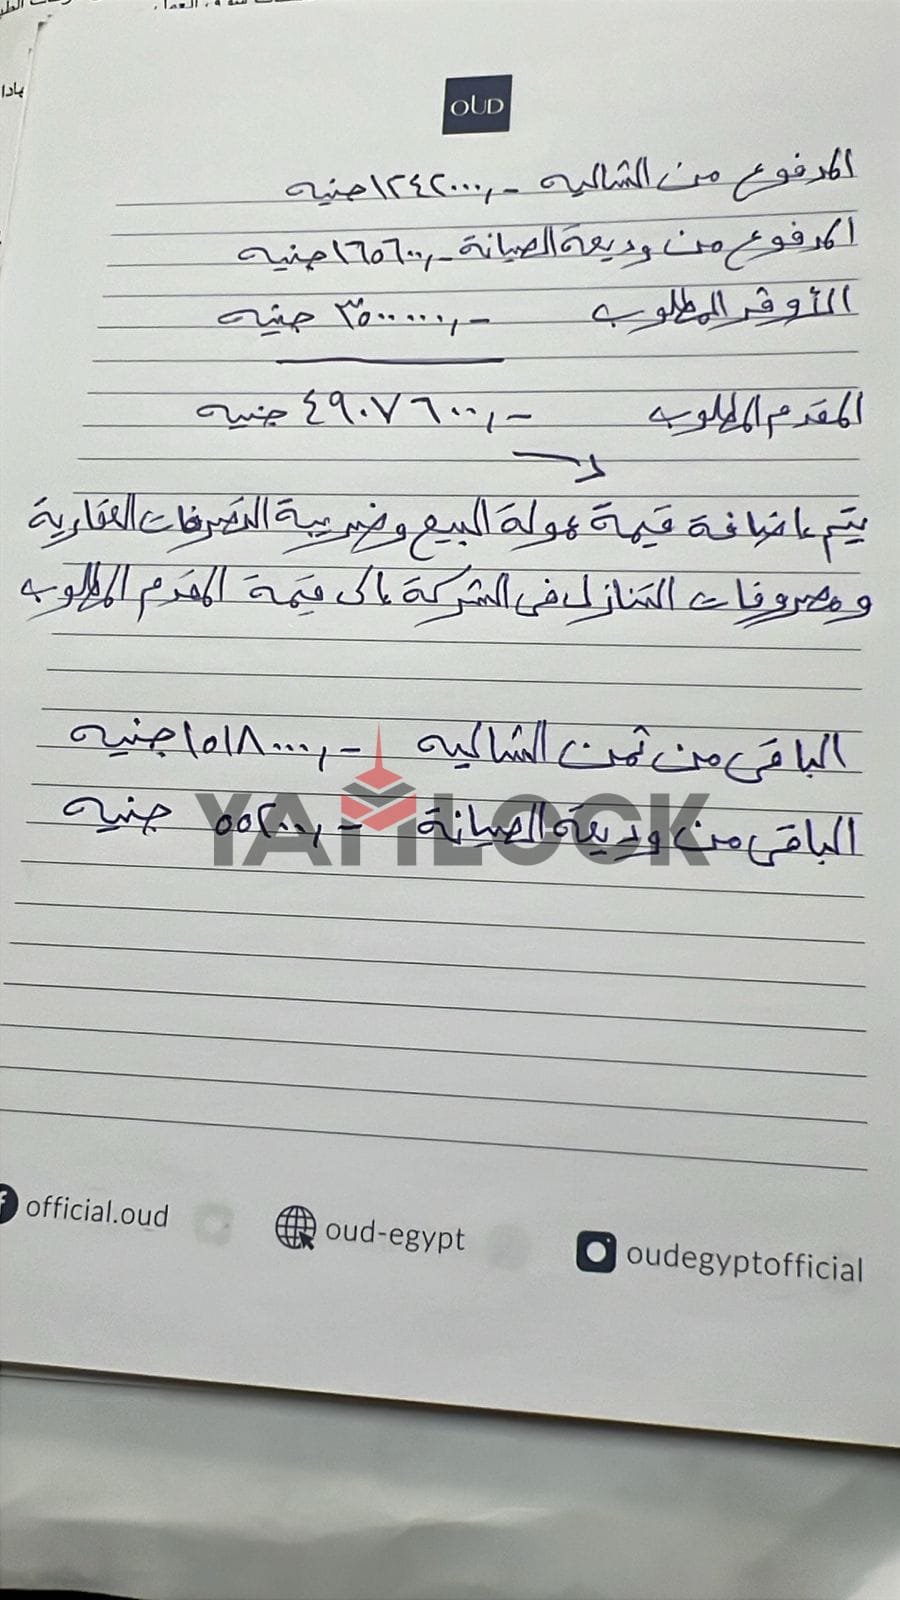 OUD
المدفوع من الشاليه -,١٢٤٢٠٠٠ جنيه
المدفوع من وديعة الصيانة -,١٦٥٦٠٠ جنيه
الأوفر المطلوب -,٣٥٠٠٠٠٠ جنيه
المقدم المطلوب -,٤٩٠٧٦٠٠ جنيه
يتم اضافة قيمة عمولة البيع وضريبة التصرفات العقارية
ومصروفات التنازل فى الشركة الى قيمة المقدم المطلوب
الباقى من ثمن الشاليه -,١٥١٨٠٠٠ جنيه
الباقى من وديعة الصيانة -,٥٥٢٠٠ جنيه
YAMLOCK
official.oud oud-egypt oudegyptofficial